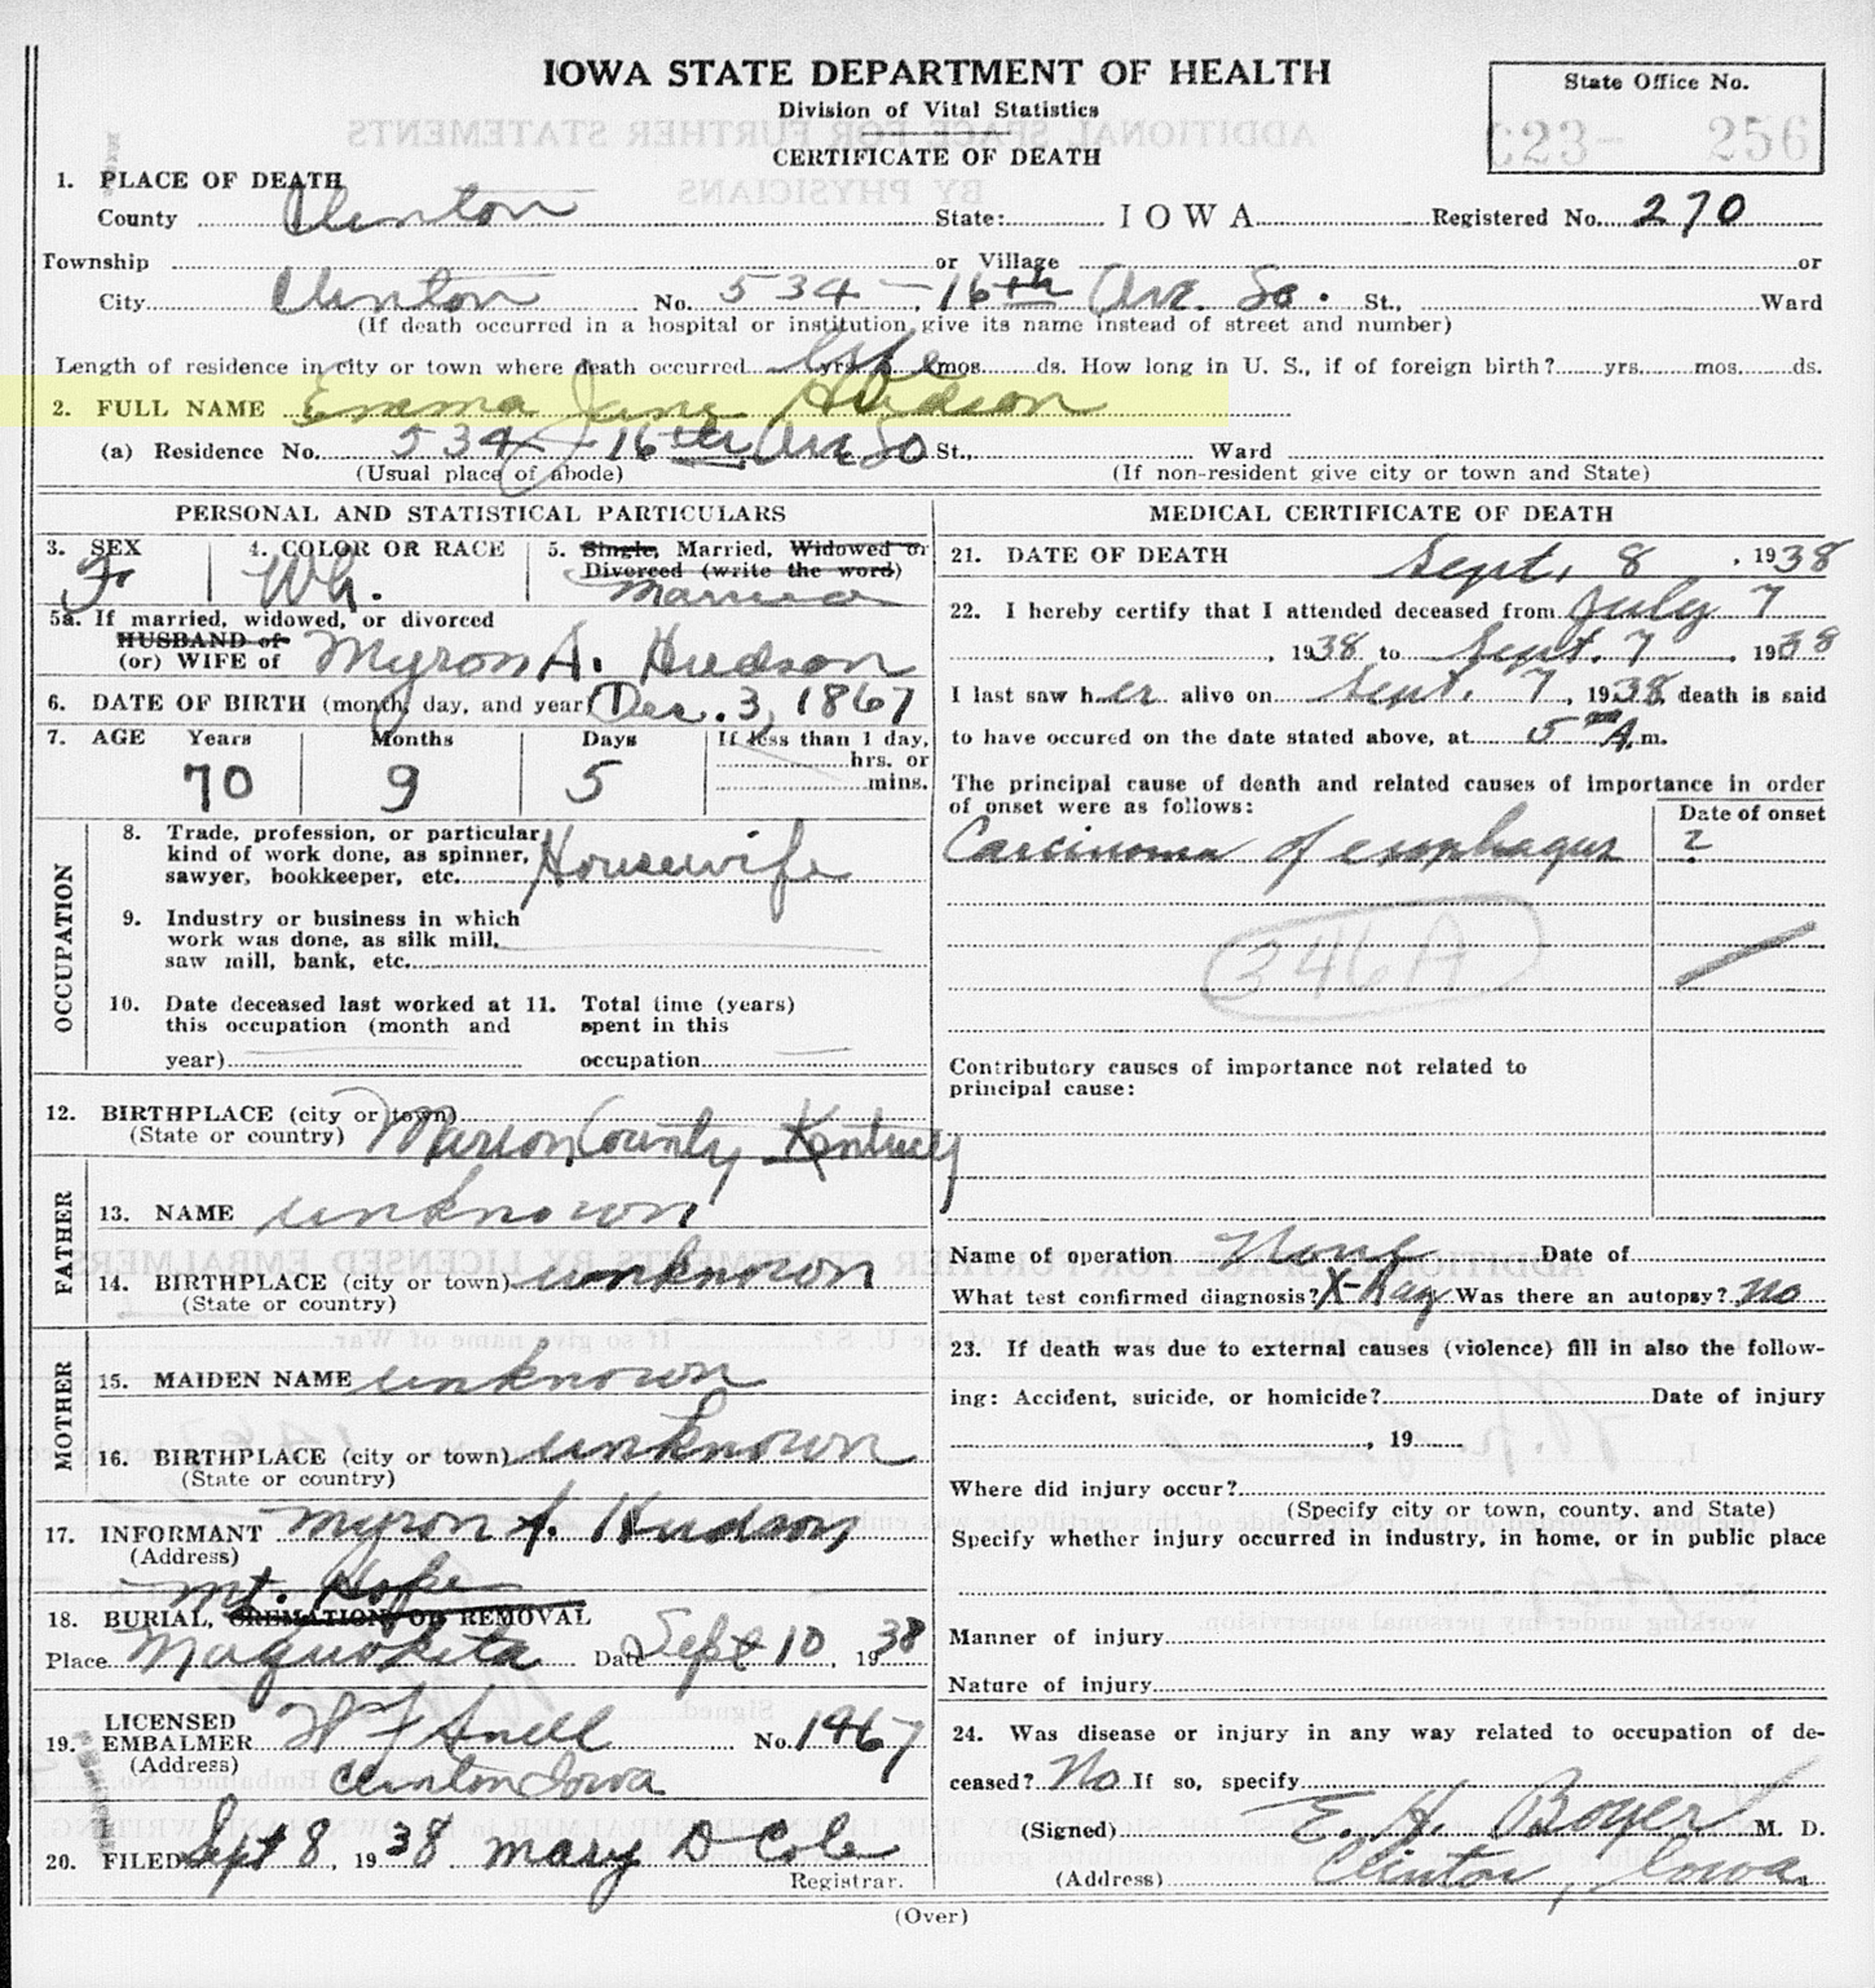 IOWA STATE DEPARTMENT OF HEALTH
Division of Vital Statistics
CERTIFICATE OF DEATH
State Office No.
C23- 256
1. PLACE OF DEATH
County Clinton State: IOWA Registered No. 270
Township or Village or
City Clinton No. 534 - 16th Ave. So. St., Ward
(If death occurred in a hospital or institution, give its name instead of street and number)
Length of residence in city or town where death occurred Life yrs. mos. ds. How long in U. S., if of foreign birth? yrs. mos. ds.
2. FULL NAME Emma Jane Hudson
(a) Residence No. 534 - 16th Ave So St., Ward
(Usual place of abode) (If non-resident give city or town and State)
PERSONAL AND STATISTICAL PARTICULARS
3. SEX 4. COLOR OR RACE 5. Single, Married, Widowed or
Divorced (write the word)
F. Wh. Married
5a. If married, widowed, or divorced
HUSBAND of
(or) WIFE of Myron A. Hudson
6. DATE OF BIRTH (month, day, and year) Dec. 3, 1867
7. AGE Years Months Days If less than 1 day,
hrs. or
70 9 5 mins.
OCCUPATION
8. Trade, profession, or particular
kind of work done, as spinner,
sawyer, bookkeeper, etc. Housewife
9. Industry or business in which
work was done, as silk mill,
saw mill, bank, etc.
10. Date deceased last worked at 11. Total time (years)
this occupation (month and spent in this
year) occupation
12. BIRTHPLACE (city or town)
(State or country) Marion County Kentucky
FATHER
13. NAME unknown
14. BIRTHPLACE (city or town) unknown
(State or country)
MOTHER
15. MAIDEN NAME unknown
16. BIRTHPLACE (city or town) unknown
(State or country)
17. INFORMANT Myron A. Hudson
(Address)
Mt. Hope
18. BURIAL, CREMATION OR REMOVAL
Place Maquoketa Date Sept 10, 1938
19. LICENSED
EMBALMER W F Snell No. 1467
(Address) Clinton Iowa
20. FILED Sept 8, 1938 Mary D Cole
Registrar.
MEDICAL CERTIFICATE OF DEATH
21. DATE OF DEATH Sept. 8, 1938
22. I hereby certify that I attended deceased from July 7
, 1938 to Sept. 7, 1938
I last saw her alive on Sept. 7, 1938, death is said
to have occured on the date stated above, at 5 A.m.
The principal cause of death and related causes of importance in order
of onset were as follows:
Date of onset
Carcinoma of esophagus ?
346A
Contributory causes of importance not related to
principal cause:
Name of operation None Date of
What test confirmed diagnosis? X-Ray Was there an autopsy? no
23. If death was due to external causes (violence) fill in also the follow-
ing: Accident, suicide, or homicide? Date of injury
, 19
Where did injury occur?
(Specify city or town, county, and State)
Specify whether injury occurred in industry, in home, or in public place
Manner of injury
Nature of injury
24. Was disease or injury in any way related to occupation of de-
ceased? No If so, specify
(Signed) E. H. Boyer M. D.
(Address) Clinton, Iowa.
(Over)